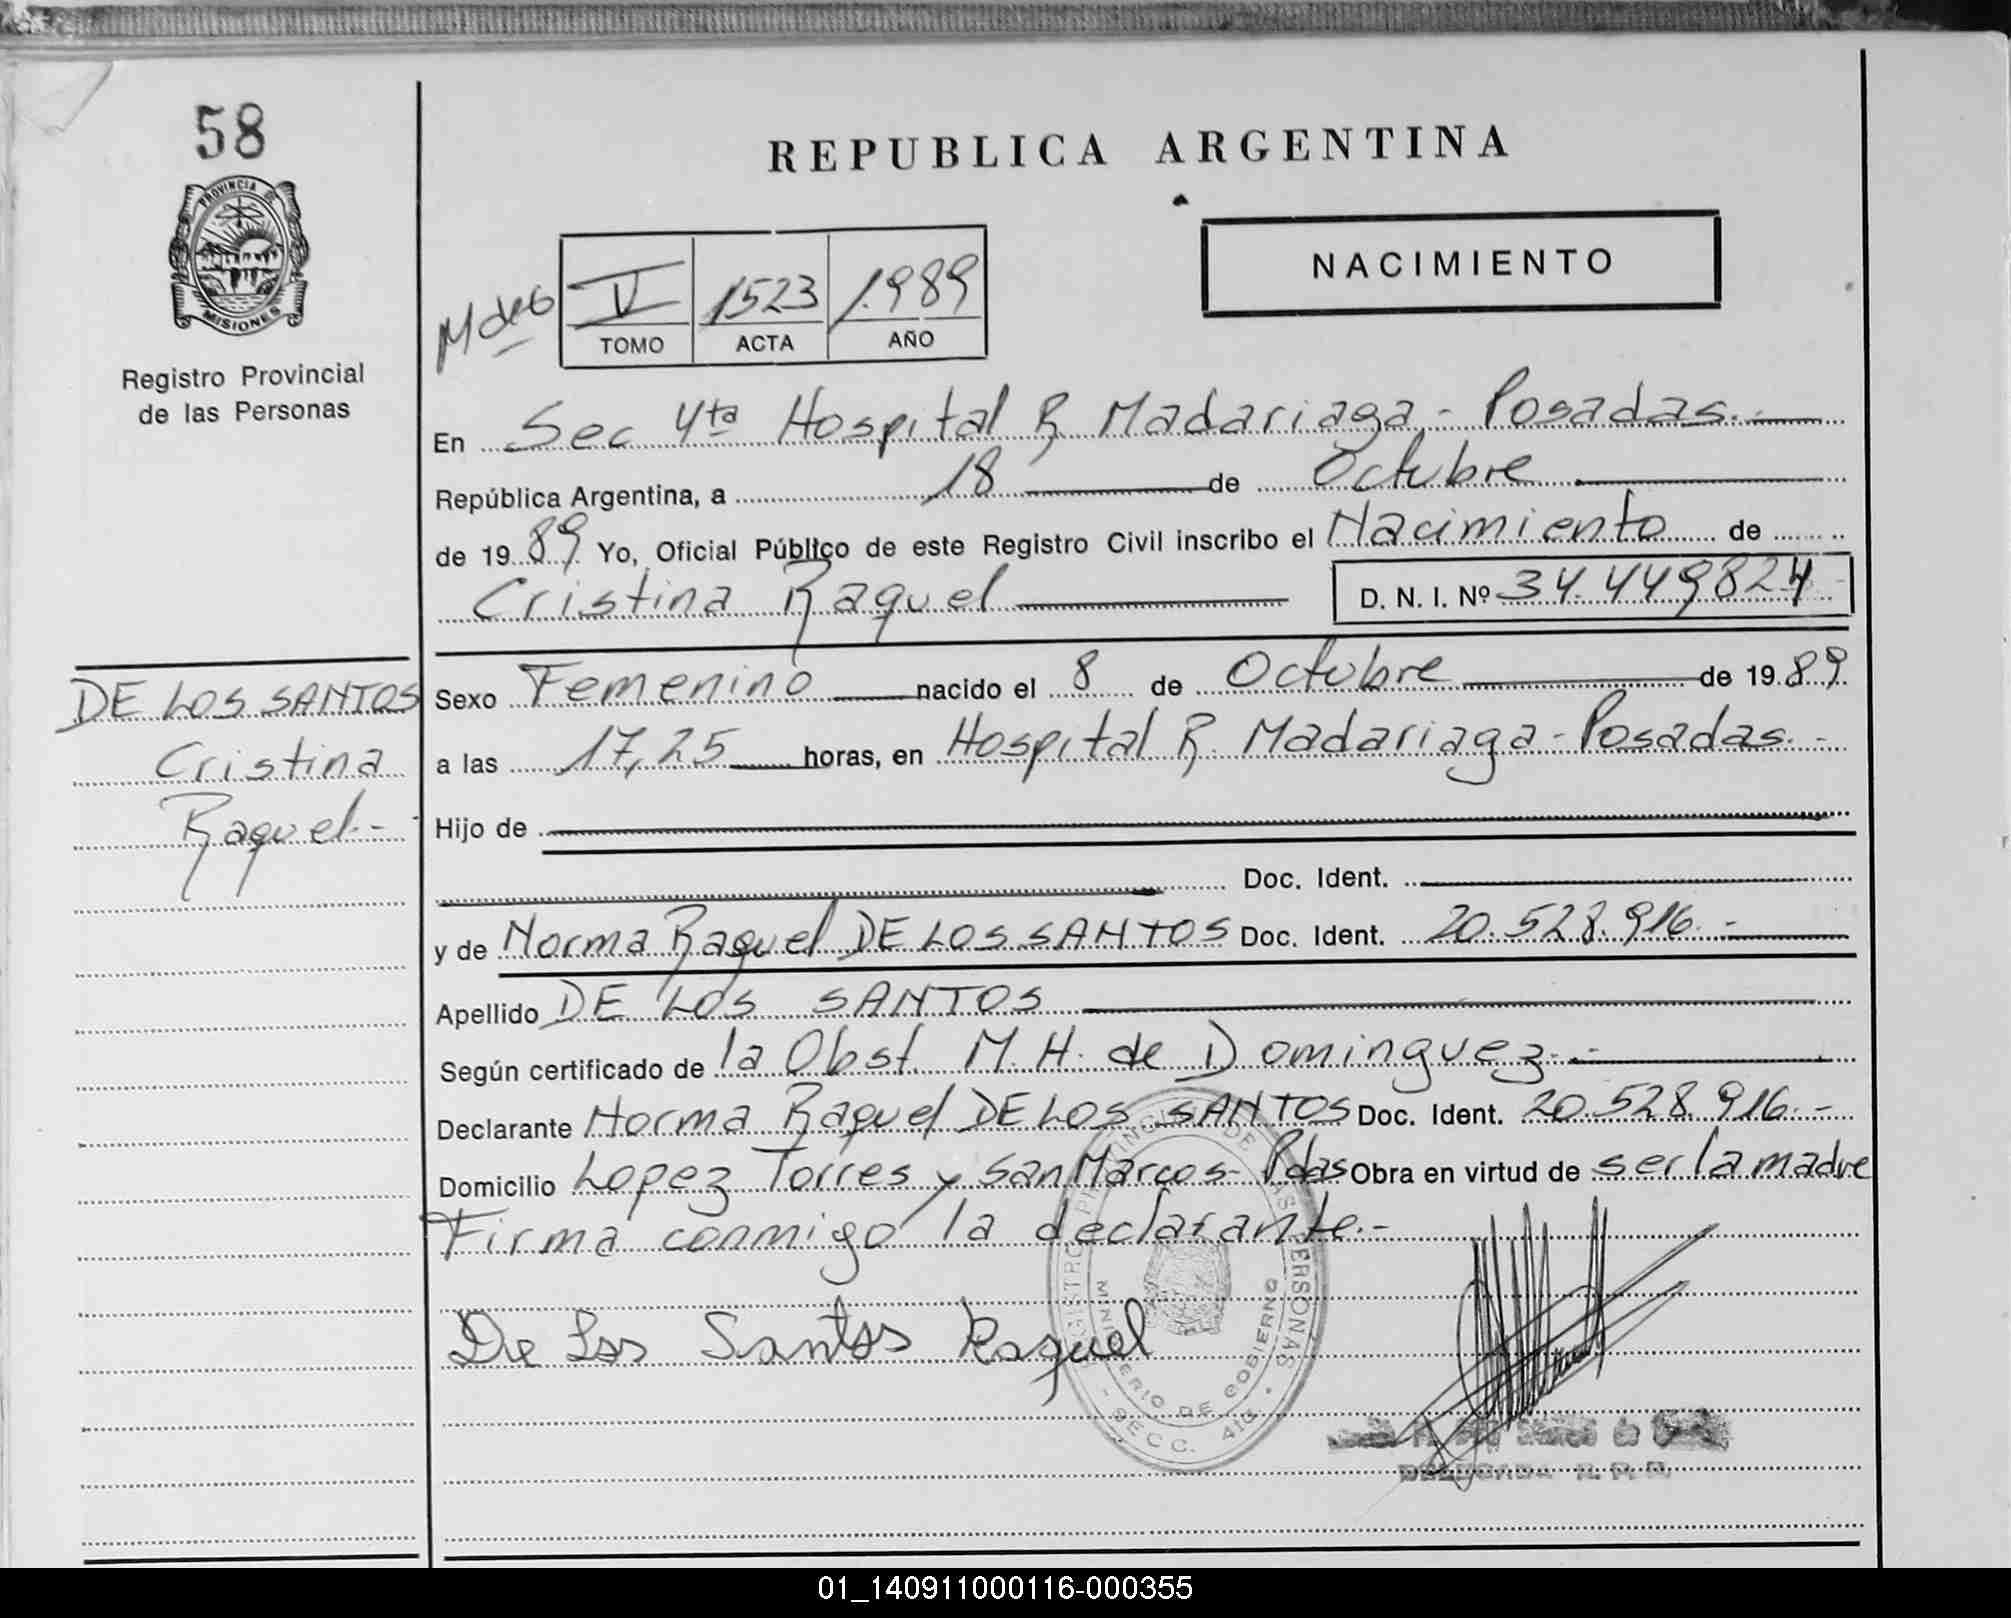 58
REPUBLICA ARGENTINA
PROVINCIA DE
MISIONES
NACIMIENTO
V 1523 1.989
TOMO ACTA AÑO
Registro Provincial
de las Personas
En Sec 4ta Hospital R Madariaga - Posadas.-
República Argentina, a 18 de Octubre
de 1989 Yo, Oficial Público de este Registro Civil inscribo el Nacimiento de
Cristina Raquel D. N. I. Nº 34.449824
DE LOS SANTOS
Cristina
Raquel.-
Sexo Femenino nacido el 8 de Octubre de 1989
a las 17,25 horas, en Hospital R. Madariaga - Posadas.-
Hijo de
Doc. Ident.
y de Norma Raquel DE LOS SANTOS Doc. Ident. 20.528.916.-
Apellido DE LOS SANTOS
Según certificado de la Obst. M. H. de Dominguez.-
Declarante Norma Raquel DE LOS SANTOS Doc. Ident. 20.528.916.-
Domicilio Lopez Torres y San Marcos - Pdas Obra en virtud de ser la madre
Firma conmigo la declarante.-
De Los Santos Raquel
MINISTERIO DE GOBIERNO
SECC. 4ta.
01_140911000116-000355